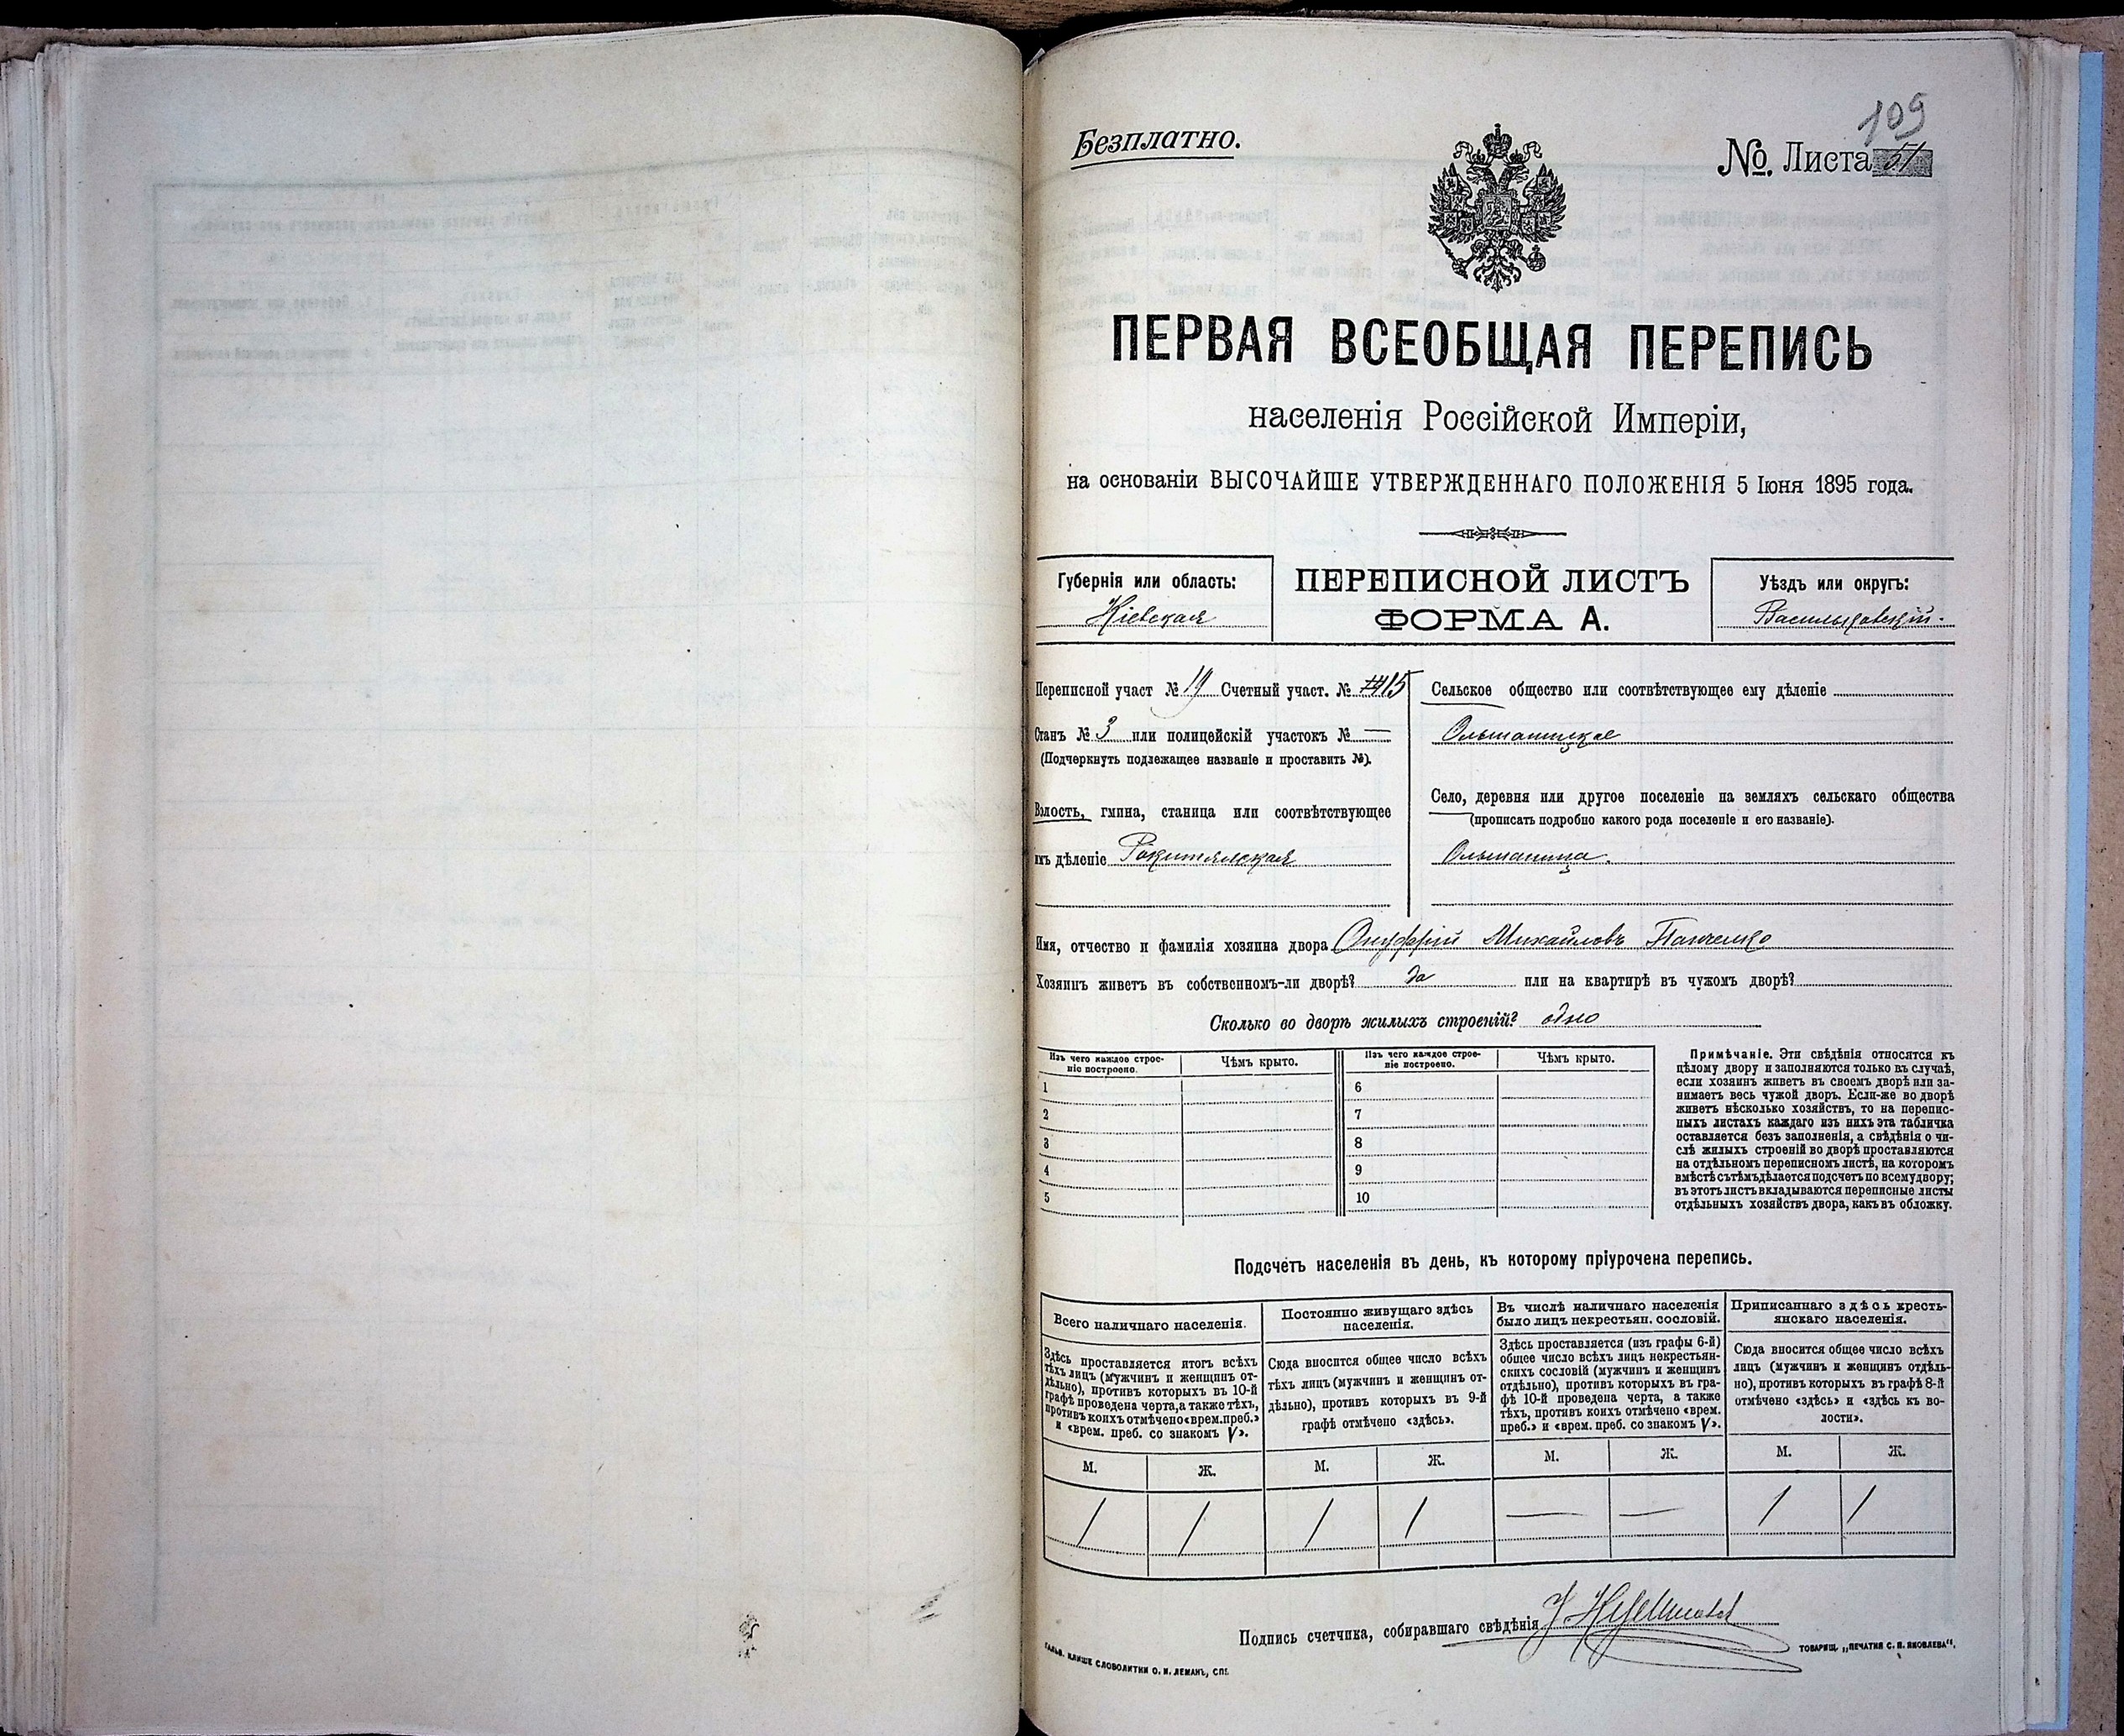 109
Безплатно.
№. Листа 51
ПЕРВАЯ ВСЕОБЩАЯ ПЕРЕПИСЬ
населенія Россійской Имперіи,
на основаніи ВЫСОЧАЙШЕ УТВЕРЖДЕННАГО ПОЛОЖЕНІЯ 5 Іюня 1895 года.
Губернія или область:
Кіевская
ПЕРЕПИСНОЙ ЛИСТЪ
ФОРМА А.
Уѣздъ или округъ:
Васильковскій.
Переписной участ № 19 Счетный участ. № 15
Станъ № 3 или полицейскій участокъ № —
(Подчеркнуть подлежащее названіе и проставить №).
Волость, гмина, станица или соотвѣтствующее
имъ дѣленіе Рокитянская
Сельское общество или соотвѣтствующее ему дѣленіе
Ольшаницкое
Село, деревня или другое поселеніе на земляхъ сельскаго общества
(прописать подробно какого рода поселеніе и его названіе).
Ольшаница.
Имя, отчество и фамилія хозяина двора Онуфрій Михайловъ Панченко
Хозяинъ живетъ въ собственномъ-ли дворѣ? да или на квартирѣ въ чужомъ дворѣ?
Сколько во дворѣ жилыхъ строеній? одно
Изъ чего каждое строе-
ніе построено.
Чѣмъ крыто.
Изъ чего каждое строе-
ніе построено.
Чѣмъ крыто.
1 6
2 7
3 8
4 9
5 10
Примѣчаніе. Эти свѣдѣнія относятся къ
цѣлому двору и заполняются только въ случаѣ,
если хозяинъ живетъ въ своемъ дворѣ или за-
нимаетъ весь чужой дворъ. Если-же во дворѣ
живетъ нѣсколько хозяйствъ, то на перепис-
ныхъ листахъ каждаго изъ нихъ эта табличка
оставляется безъ заполненія, а свѣдѣнія о чи-
слѣ жилыхъ строеній во дворѣ проставляются
на отдѣльномъ переписномъ листѣ, на которомъ
вмѣстѣ съ тѣмъ дѣлается подсчетъ по всему двору;
въ этотъ листъ вкладываются переписные листы
отдѣльныхъ хозяйствъ двора, какъ въ обложку.
Подсчетъ населенія въ день, къ которому пріурочена перепись.
Всего наличнаго населенія.
Здѣсь проставляется итогъ всѣхъ
тѣхъ лицъ (мужчинъ и женщинъ от-
дѣльно), противъ которыхъ въ 10-й
графѣ проведена черта, а также тѣхъ,
противъ коихъ отмѣчено «врем. преб.»
и «врем. преб. со знакомъ V».
Постоянно живущаго здѣсь
населенія.
Сюда вносится общее число всѣхъ
тѣхъ лицъ (мужчинъ и женщинъ от-
дѣльно), противъ которыхъ въ 9-й
графѣ отмѣчено «здѣсь».
Въ числѣ наличнаго населенія
было лицъ некрестьян. сословій.
Здѣсь проставляется (изъ графы 6-й)
общее число всѣхъ лицъ некрестьян-
скихъ сословій (мужчинъ и женщинъ
отдѣльно), противъ которыхъ въ гра-
фѣ 10-й проведена черта, а также
тѣхъ, противъ коихъ отмѣчено «врем.
преб.» и «врем. преб. со знакомъ V».
Приписаннаго здѣсь кресть-
янскаго населенія.
Сюда вносится общее число всѣхъ
лицъ (мужчинъ и женщинъ отдѣль-
но), противъ которыхъ въ графѣ 8-й
отмѣчено «здѣсь» и «здѣсь къ во-
лости».
М. Ж. М. Ж. М. Ж. М. Ж.
1 1 1 1 — — 1 1
Подпись счетчика, собиравшаго свѣдѣнія
ГАЛЬВ. КЛИШЕ СЛОВОЛИТНИ О. И. ЛЕМАНЪ, СПБ.
ТОВАРИЩ. „ПЕЧАТНЯ С. П. ЯКОВЛЕВА“.